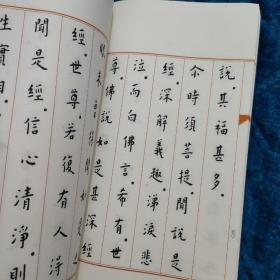 說。其福甚多。
尒時須菩提。聞說是
經。深解義趣。涕淚悲
泣。而白佛言。希有。世
尊。佛說如是甚深經
經。世尊。若復有人得
聞是經。信心清淨。則
生實相。